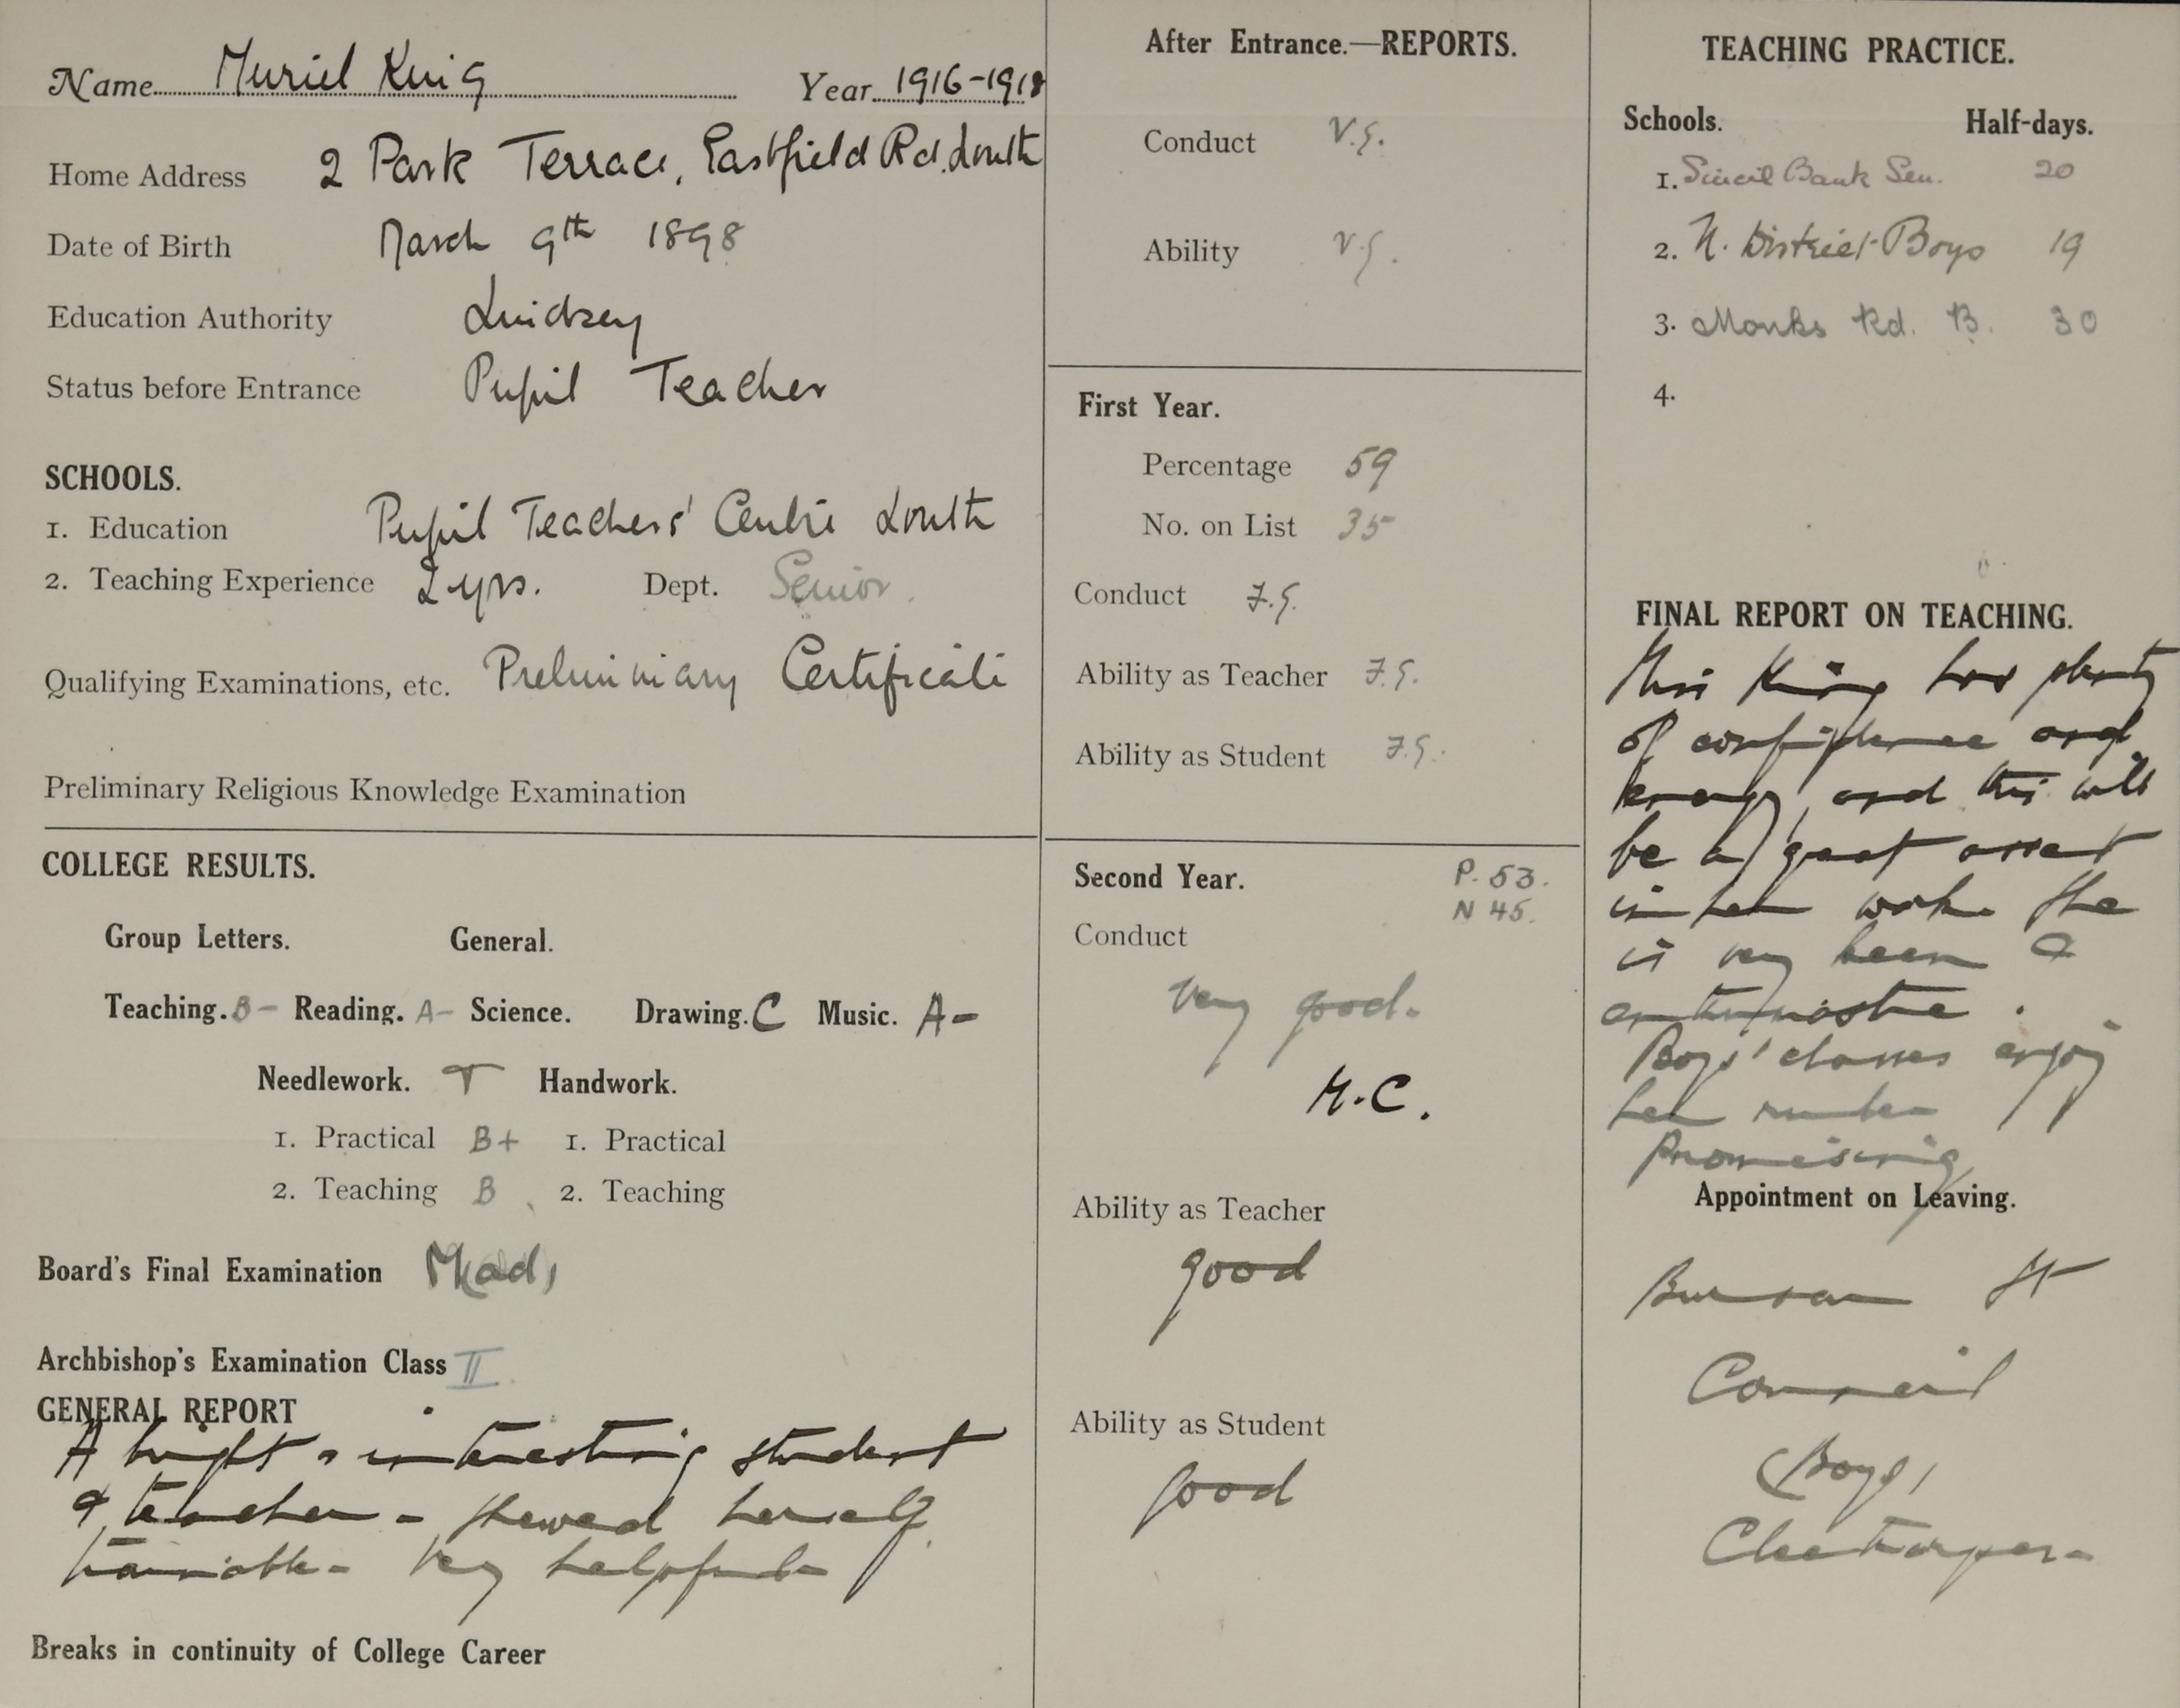 Name Muriel King Year 1916-1918
Home Address 2 Park Terrace, Eastfield Rd. Louth
Date of Birth March 9th 1898
Education Authority Lindsey
Status before Entrance Pupil Teacher
SCHOOLS.
1. Education Pupil Teachers' Centre Louth
2. Teaching Experience 2 yrs. Dept. Senior.
Qualifying Examinations, etc. Preliminary Certificate
Preliminary Religious Knowledge Examination
COLLEGE RESULTS.
Group Letters. General.
Teaching. B- Reading. A- Science. Drawing. C Music. A-
Needlework. T Handwork.
1. Practical B+ 1. Practical
2. Teaching B 2. Teaching
Board's Final Examination
Archbishop's Examination Class II.
GENERAL REPORT
A bright & interesting student
& teacher - shewed herself
trainable - Very helpful -
Breaks in continuity of College Career
After Entrance.—REPORTS.
Conduct V.G.
Ability V.G.
First Year.
Percentage 59
No. on List 35
Conduct F.G.
Ability as Teacher F.G.
Ability as Student F.G.
Second Year. P. 53.
N 45.
Conduct
Very good.
H.C.
Ability as Teacher
good
Ability as Student
good
TEACHING PRACTICE.
Schools. Half-days.
1. Sincil Bank Sen. 20
2. N. District Boys 19
3. Monks Rd. B. 30
4.
FINAL REPORT ON TEACHING.
Miss King has plenty
of confidence and
energy, and this will
be a great asset
in her work. She
is very keen &
enthusiastic.
Boys' classes enjoy
her
Promising
Appointment on Leaving.
Bursar St
Council
(Boys)
Cleethorpes-